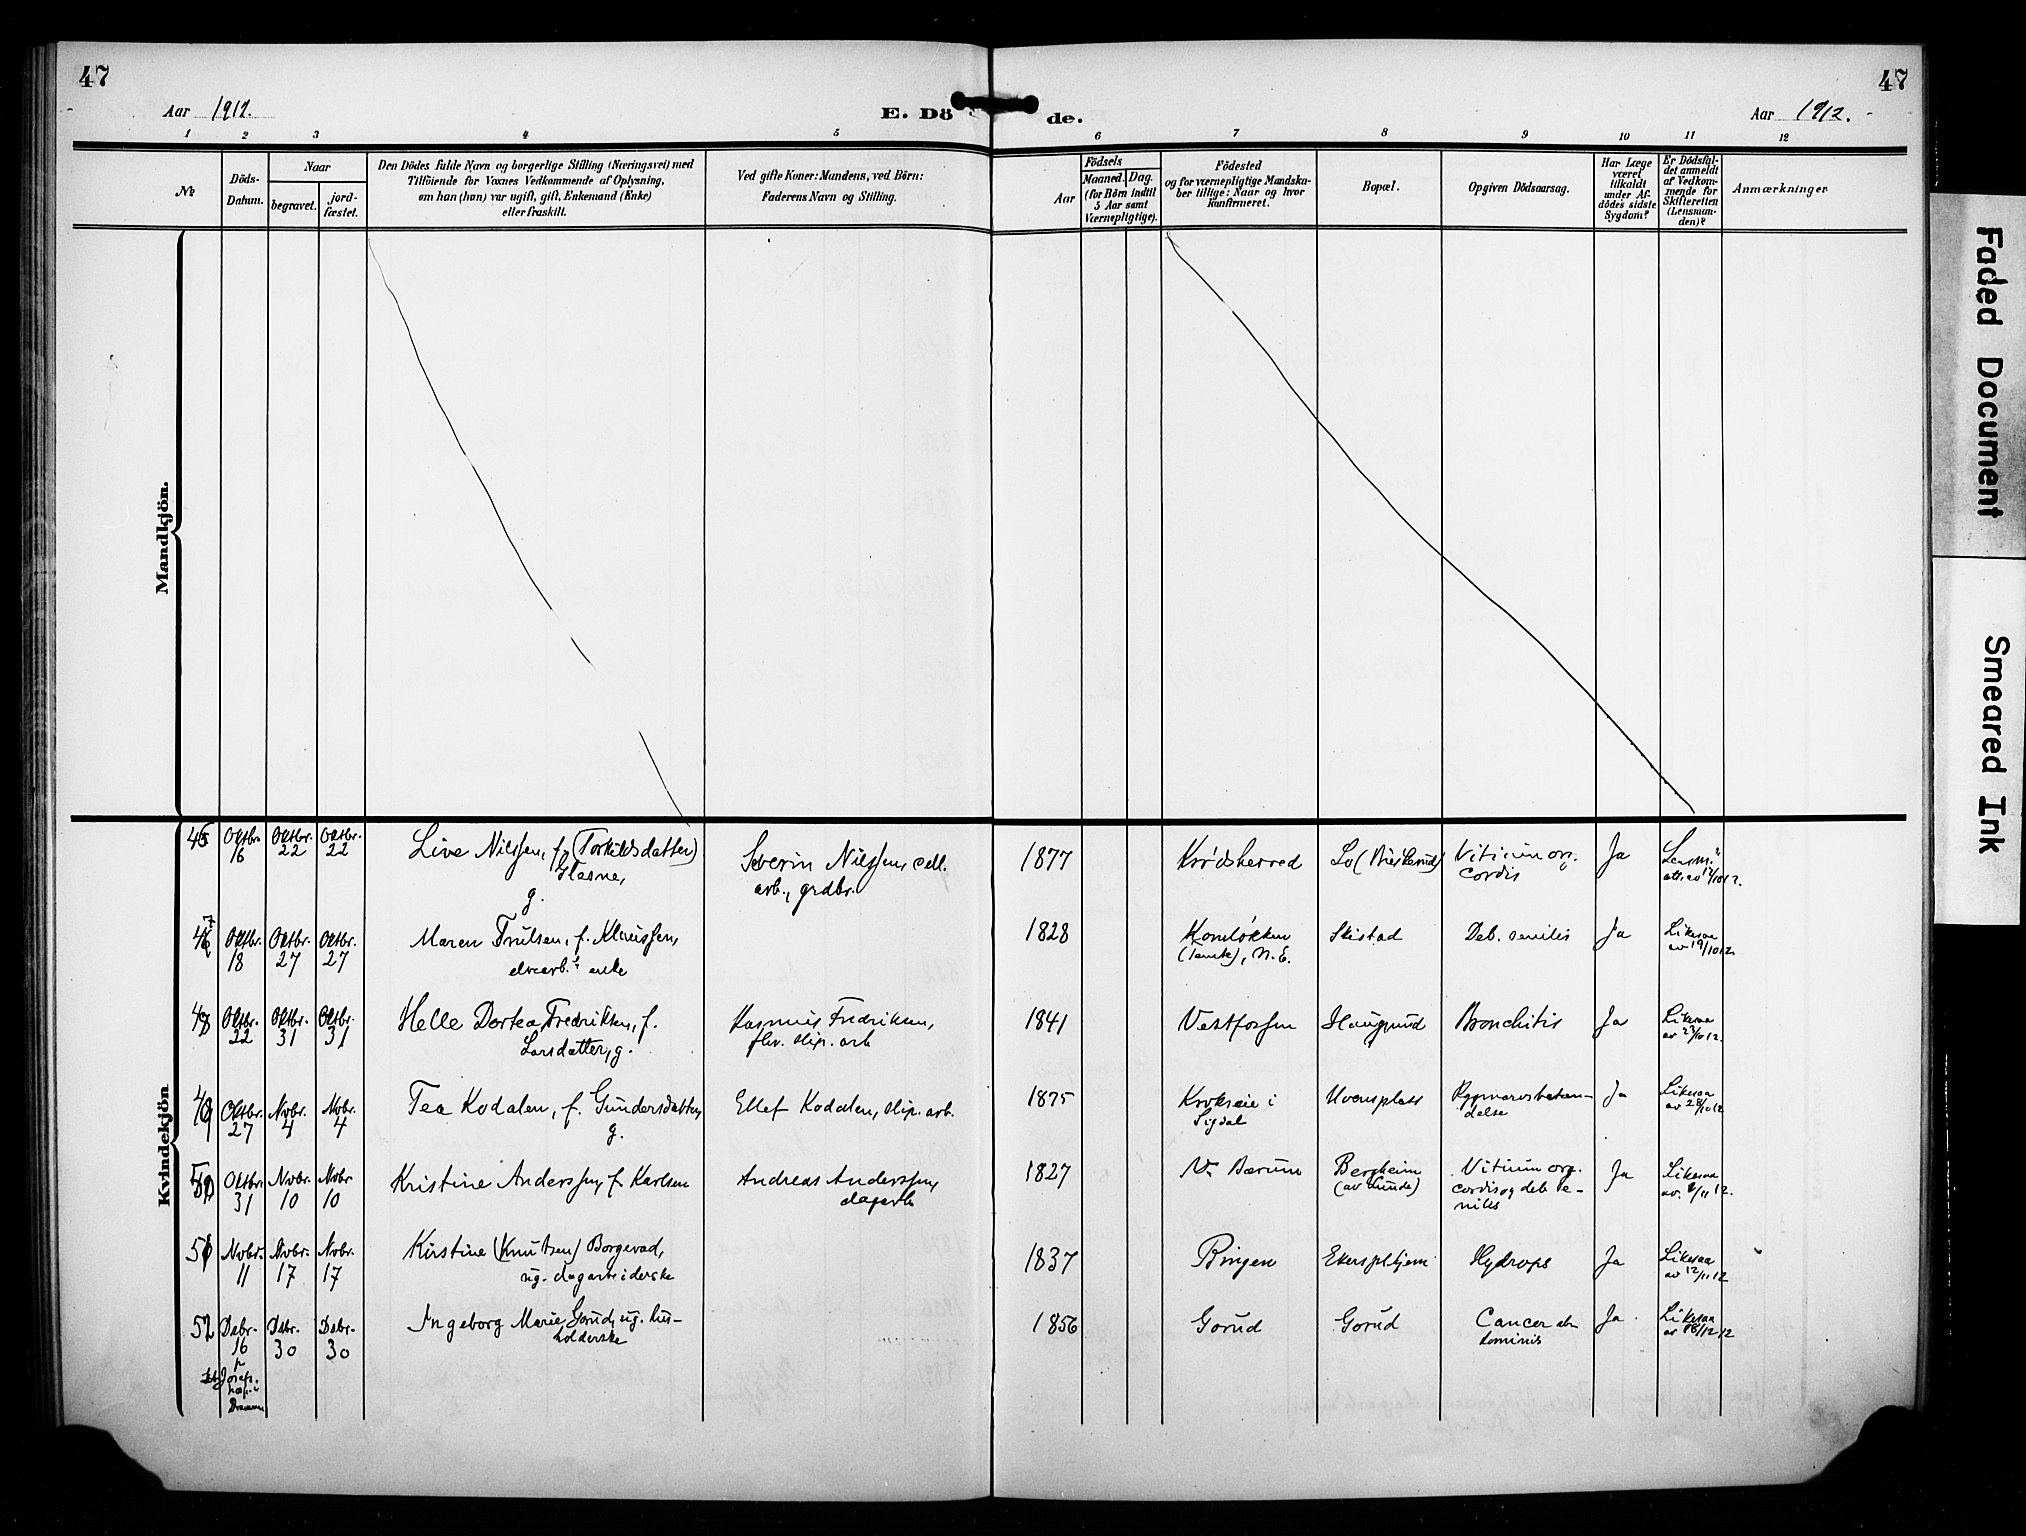 47
47
Aar 1912.
E. Dö
de.
Aar 1912.
1 2 3 4 5 6 7 8 9 10 11 12
No
Döds-
Datum.
Naar
begravet.
jord-
fæstet.
Den Dödes fulde Navn og borgerlige Stilling (Næringsvei) med
Tilföiende for Voxnes Vedkommende af Oplysning,
om han (hun) var ugift, gift, Enkemand (Enke)
eller fraskilt.
Ved gifte Koner: Mandens, ved Börn:
Faderens Navn og Stilling.
Födsels
Aar
Maaned. Dag.
(for Börn indtil
5 Aar samt
Værnepligtige).
Födested
og for værnepligtige Mandska-
ber tillige: Naar og hvor
konfirmeret.
Bopæl.
Opgiven Dödsaarsag.
Har Læge
været
tilkaldt
under Af-
dödes sidste
Sygdom?
Er Dödsfal-
det anmeldt
af Vedkom-
mende for
Skifteretten
(Lensman-
den)?
Anmærkninger
Mandkjön.
Kvindekjön
Oktbr. 16
Oktbr. 22
Oktbr. 22
Live Nilssen, f. (Torkildsdatter)
Glesne,
g.
Severin Nilssen, cell.
arb., grdbr.
1877
Krødsherred
Lo
Vitium org.
cordis
Ja
Lensm.s
att. av 17/10 12.
47
Oktbr. 18
Oktbr. 27
Oktbr. 27
Maren Trulsen, f. Klaussen,
elvearb.s enke
1828
(Tomte), N. E.
Skistad
Deb. senilis
Ja
Likesaa
av 19/10 12
48
Oktbr. 22
Oktbr. 31
Oktbr. 31
Helle Dortea Fredriksen, f.
Larsdatter, g.
Rasmus Fredriksen,
fhv. slip. arb
1841
Vestfossen
Haugsund
Bronchitis
Ja
Likesaa
av 23/10 12.
49
Oktbr. 27
Novbr. 4
Novbr. 4
Tea Kodalen, f. Gundersdatter,
g.
Ellef Kodalen, slip. arb.
1875
Krokseie i
Sigdal
Moensplass
Rygmarvsbetæn-
delse
Ja
Likesaa
av 28/10 12
50
Oktbr. 31
Novbr. 10
Novbr. 10
Kristine Anderssen, f. Karlsen
Andreas Anderssen,
dagarb
1827
V. Bærum
Bergheim
(av Lunde)
Vitium org.
cordis og deb. se-
nilis
Ja
Likesaa
av. /11 12.
51
Novbr. 11
Novbr. 17
Novbr. 17
Kirstine (Knutsen) Borgevad,
ug. dagarbeiderske
1837
Bingen
Ekers plhjem
Hydrops
Ja
Likesaa
av 12/11 12
52
Debr. 16
Debr. 30
Debr. 30
Ingeborg Marie Gorud, ug. hus-
holderske
1856
Gorud
Gorud
Cancer ab-
dominis
Ja
Likesaa
av 18/12 12
St. Josefs.
hosp. i
Drammen
Faded Document
Smeared Ink